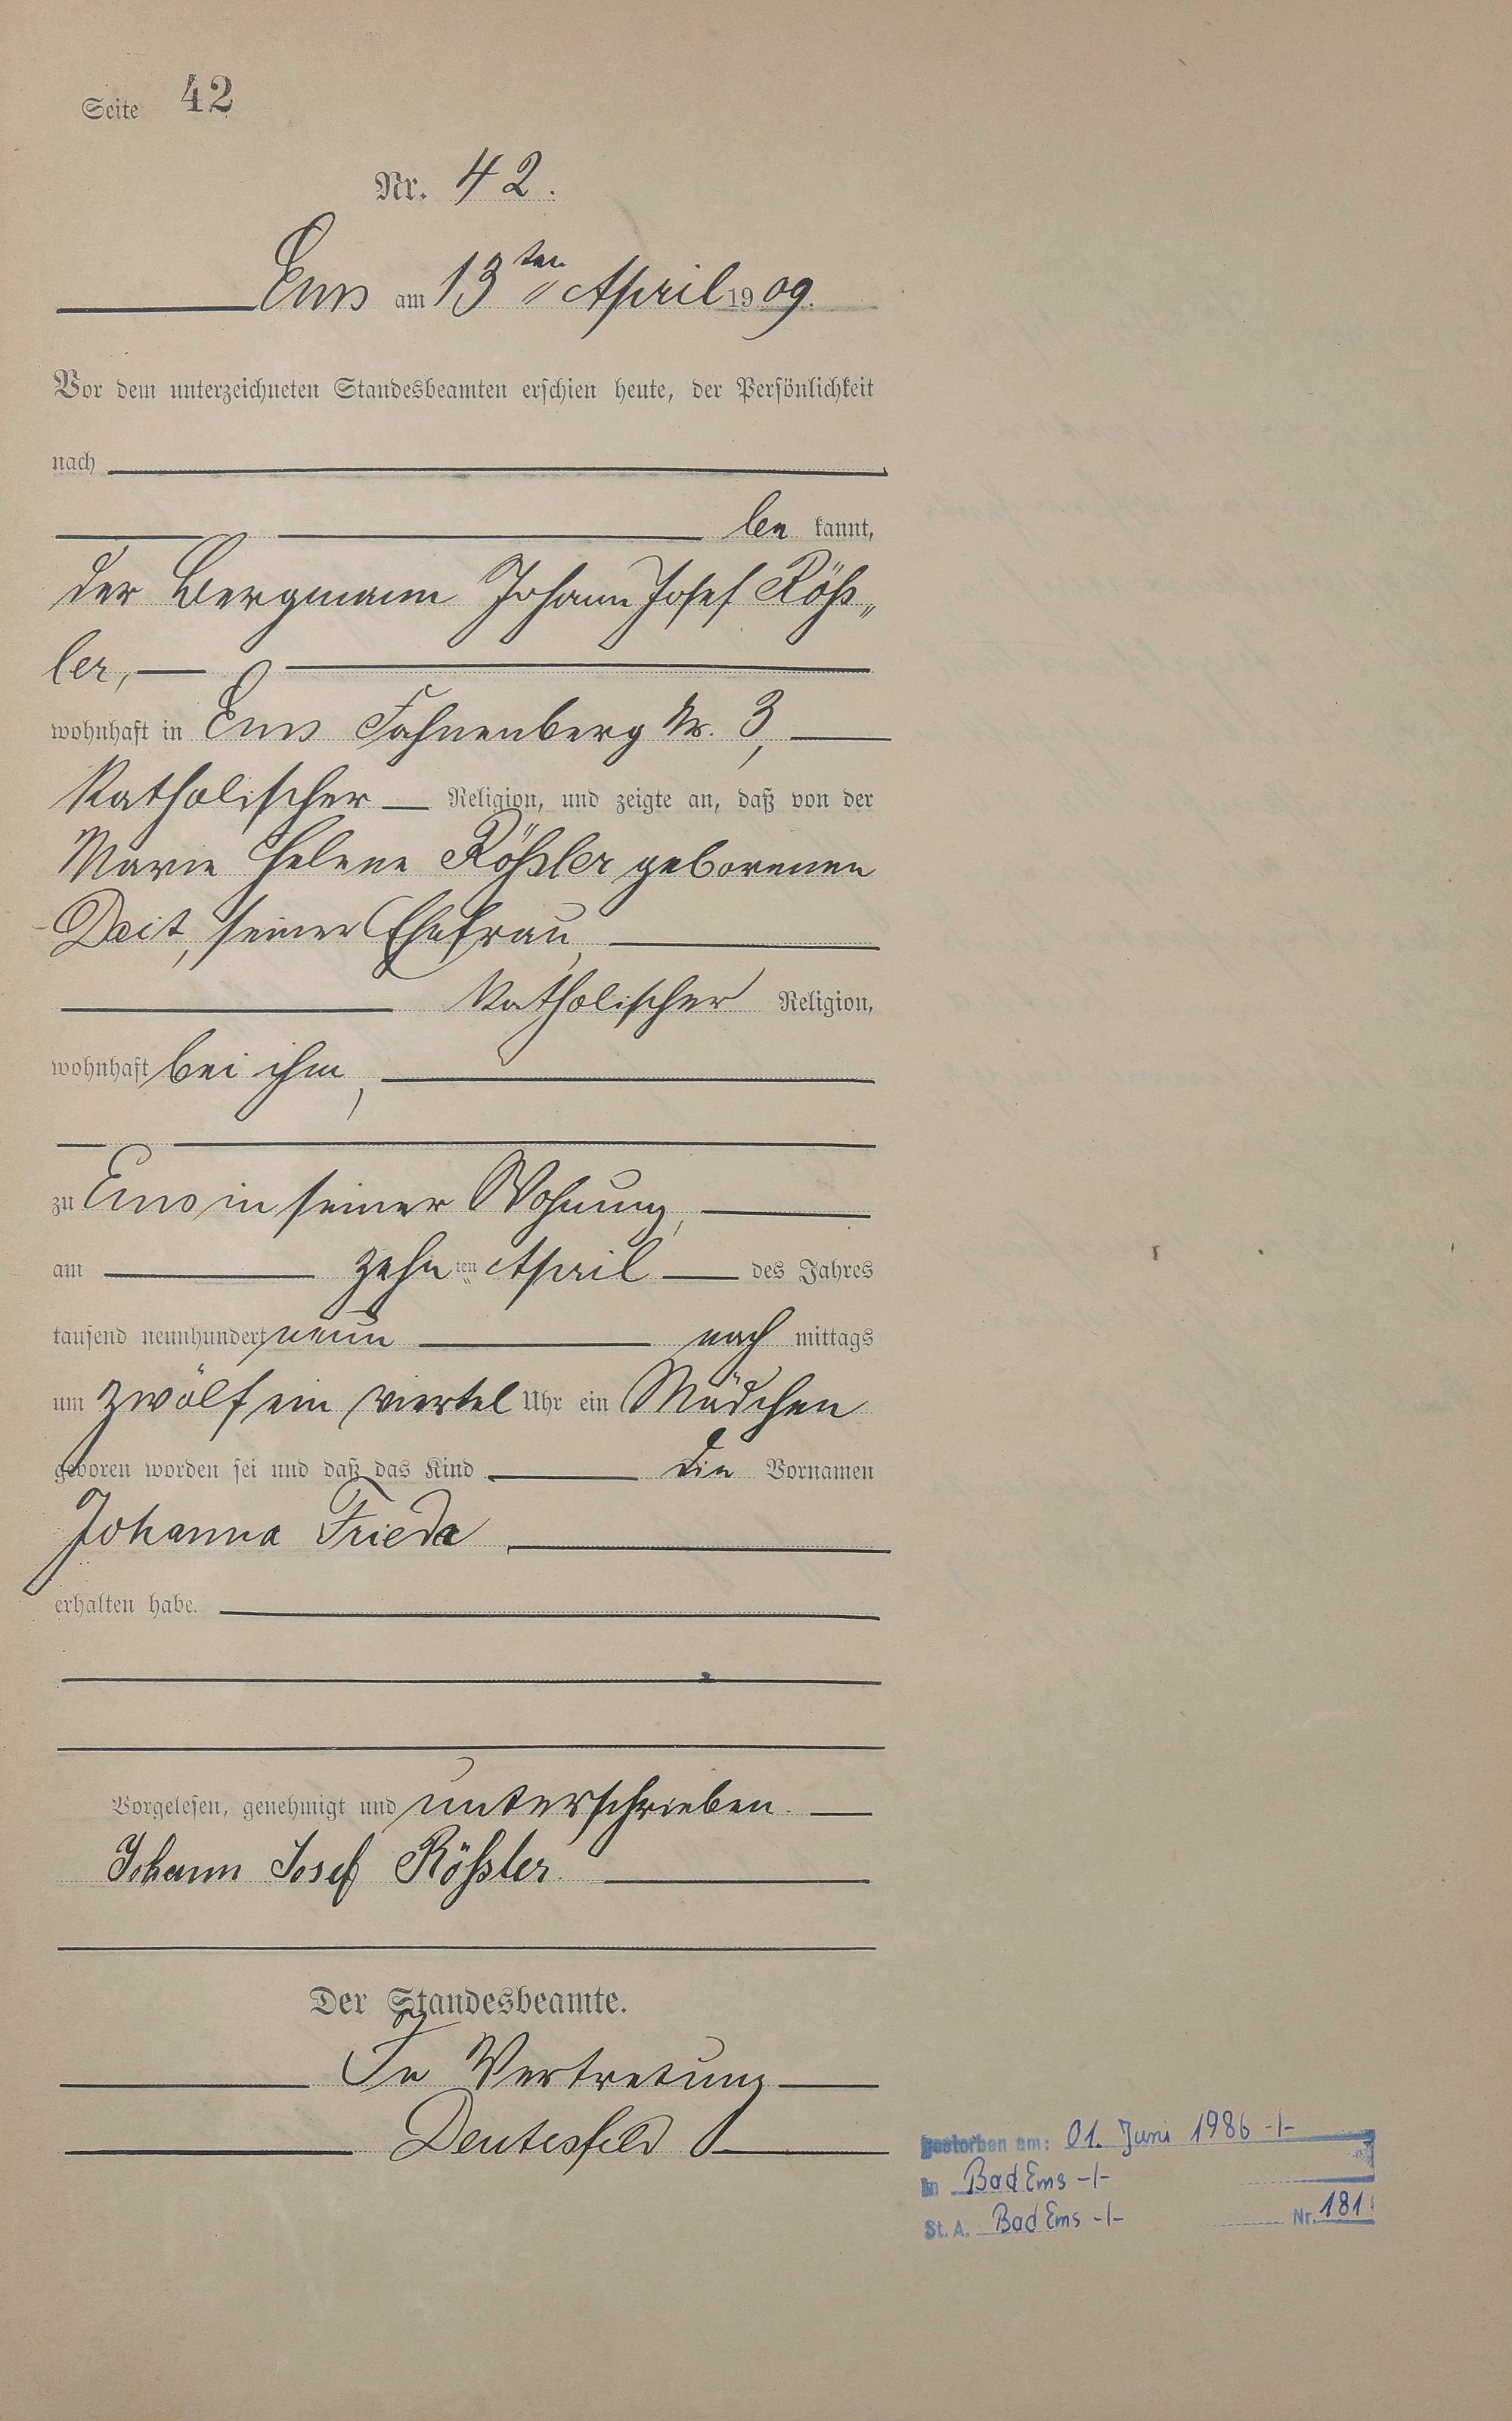 Seite 42
Nr. 42.
Ems am 13ten April 1909.
Vor dem unterzeichneten Standesbeamten erschien heute, der Persönlichkeit
nach
be kannt,
der Bergmann Johann Josef Röß„
ler,
wohnhaft in Ems Fahnenberg Nr. 3,
katholischer Religion, und zeigte an, daß von der
Marie Helene Rößler geborenen
Deit, seiner Ehefrau,
katholischer Religion,
wohnhaft bei ihm,
zu Ems in seiner Wohnung,
am zehnten April des Jahres
tausend neunhundert neun nach mittags
um zwölf ein viertel Uhr ein Mädchen
geboren worden sei und daß das Kind die Vornamen
Johanna Frieda
erhalten habe.
Vorgelesen, genehmigt und unterschrieben.
Johann Josef Rößler
Der Standesbeamte.
In Vertretung
Deutesfeld
gestorben am: 01. Juni 1986 -/-
in Bad Ems -/-
St. A. Bad Ems -/- Nr. 181